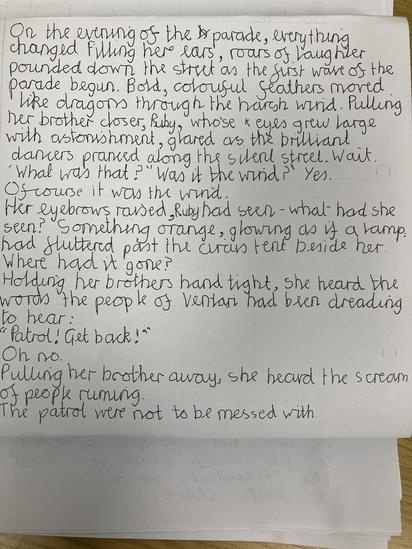 On the evening of the parade, everything
changed. Filling her ears, roars of laughter
pounded down the street as the first wave of the
parade begun. Bold, colourful feathers moved
like dragons through the harsh wind. Pulling
her brother closer, Ruby, whose eyes grew large
with astonishment, glared as the brilliant
dancers pranced along the silent street. Wait.
"What was that?" Was it the wind? Yes.
Ofcourse it was the wind.
Her eyebrows raised, Ruby had seen - what had she
seen? Something orange, glowing as if a lamp,
had fluttered past the circus tent beside her.
Where had it gone?
Holding her brothers hand tight, she heard the
words the people of Ventari had been dreading
to hear:
"Patrol! Get back!"
Oh no.
Pulling her brother away, she heard the scream
of people running.
The patrol were not to be messed with.